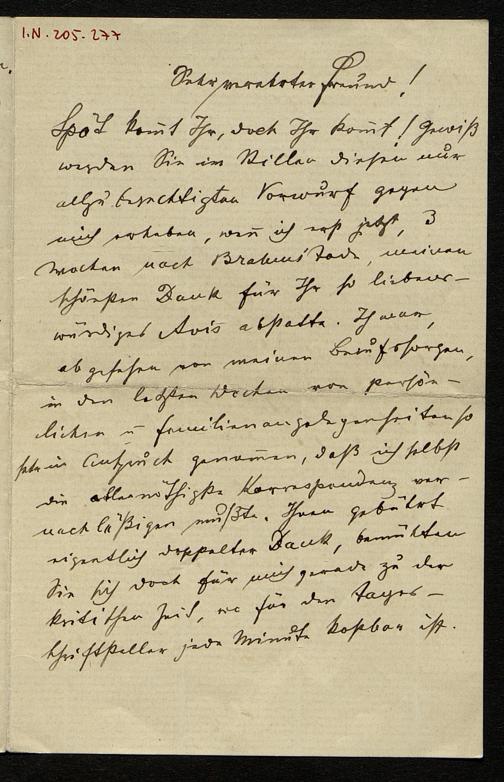 I.N. 205.277
Sehr verehrter Freund!
Spät kom̄t Ihr, doch Ihr kom̄t! Gewiß
werden Sie im Stillen diesen nur
allzu berechtigten Vorwurf gegen
mich erheben, wen̄ ich erst jetzt, 3
Wochen nach Brahms' Tode, meinen
schönsten Dank für Ihr so liebens-
würdiges Avis abstatte. Ich war,
abgesehen von meinen Berufssorgen,
in den letzten Wochen von persön-
lichen u Familienangelegenheiten so
sehr in Anspruch genommen, daß ich selbst
die allernöthigste Korrespondenz ver-
nachläßigen mußte. Ihnen gebührt
eigentlich doppelter Dank, bemühten
Sie sich doch für mich gerade zu der
kritischen Zeit, wo für den Tages-
schriftsteller jede Minute kostbar ist.